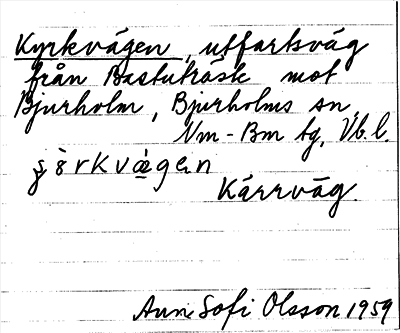 Kyrkvägen, utfartsväg
från Bastuträsk mot
Bjurholm, Bjurholms sn,
Nm-Bm tg, Vb.l.
Kärrväg.
Ann Sofi Olsson 1959